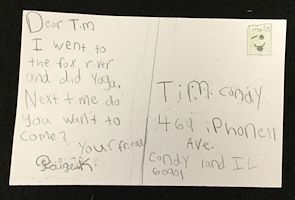 Dear Tim
I went to
the fox river
and did Yoga.
Next time do
you want to
come?
Your friend
Paige K
Tim candy
469 iPhone11
Ave.
Candy land IL
60901